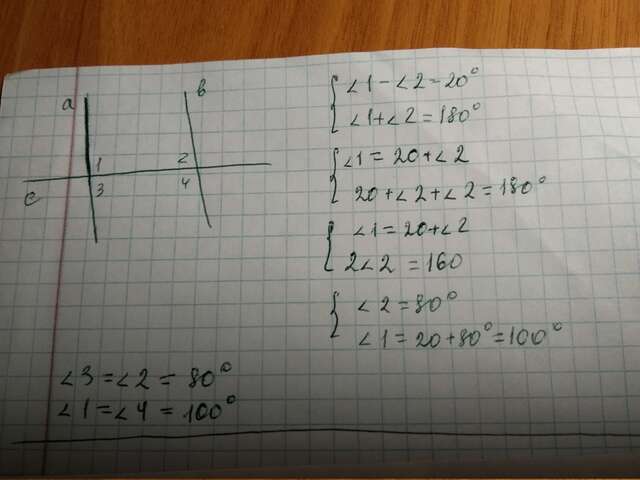 a
b
1
2
3
4
c
∠1 - ∠2 = 20°
∠1 + ∠2 = 180°
∠1 = 20 + ∠2
20 + ∠2 + ∠2 = 180°
∠1 = 20 + ∠2
2∠2 = 160
∠2 = 80°
∠1 = 20 + 80° = 100°
∠3 = ∠2 = 80°
∠1 = ∠4 = 100°